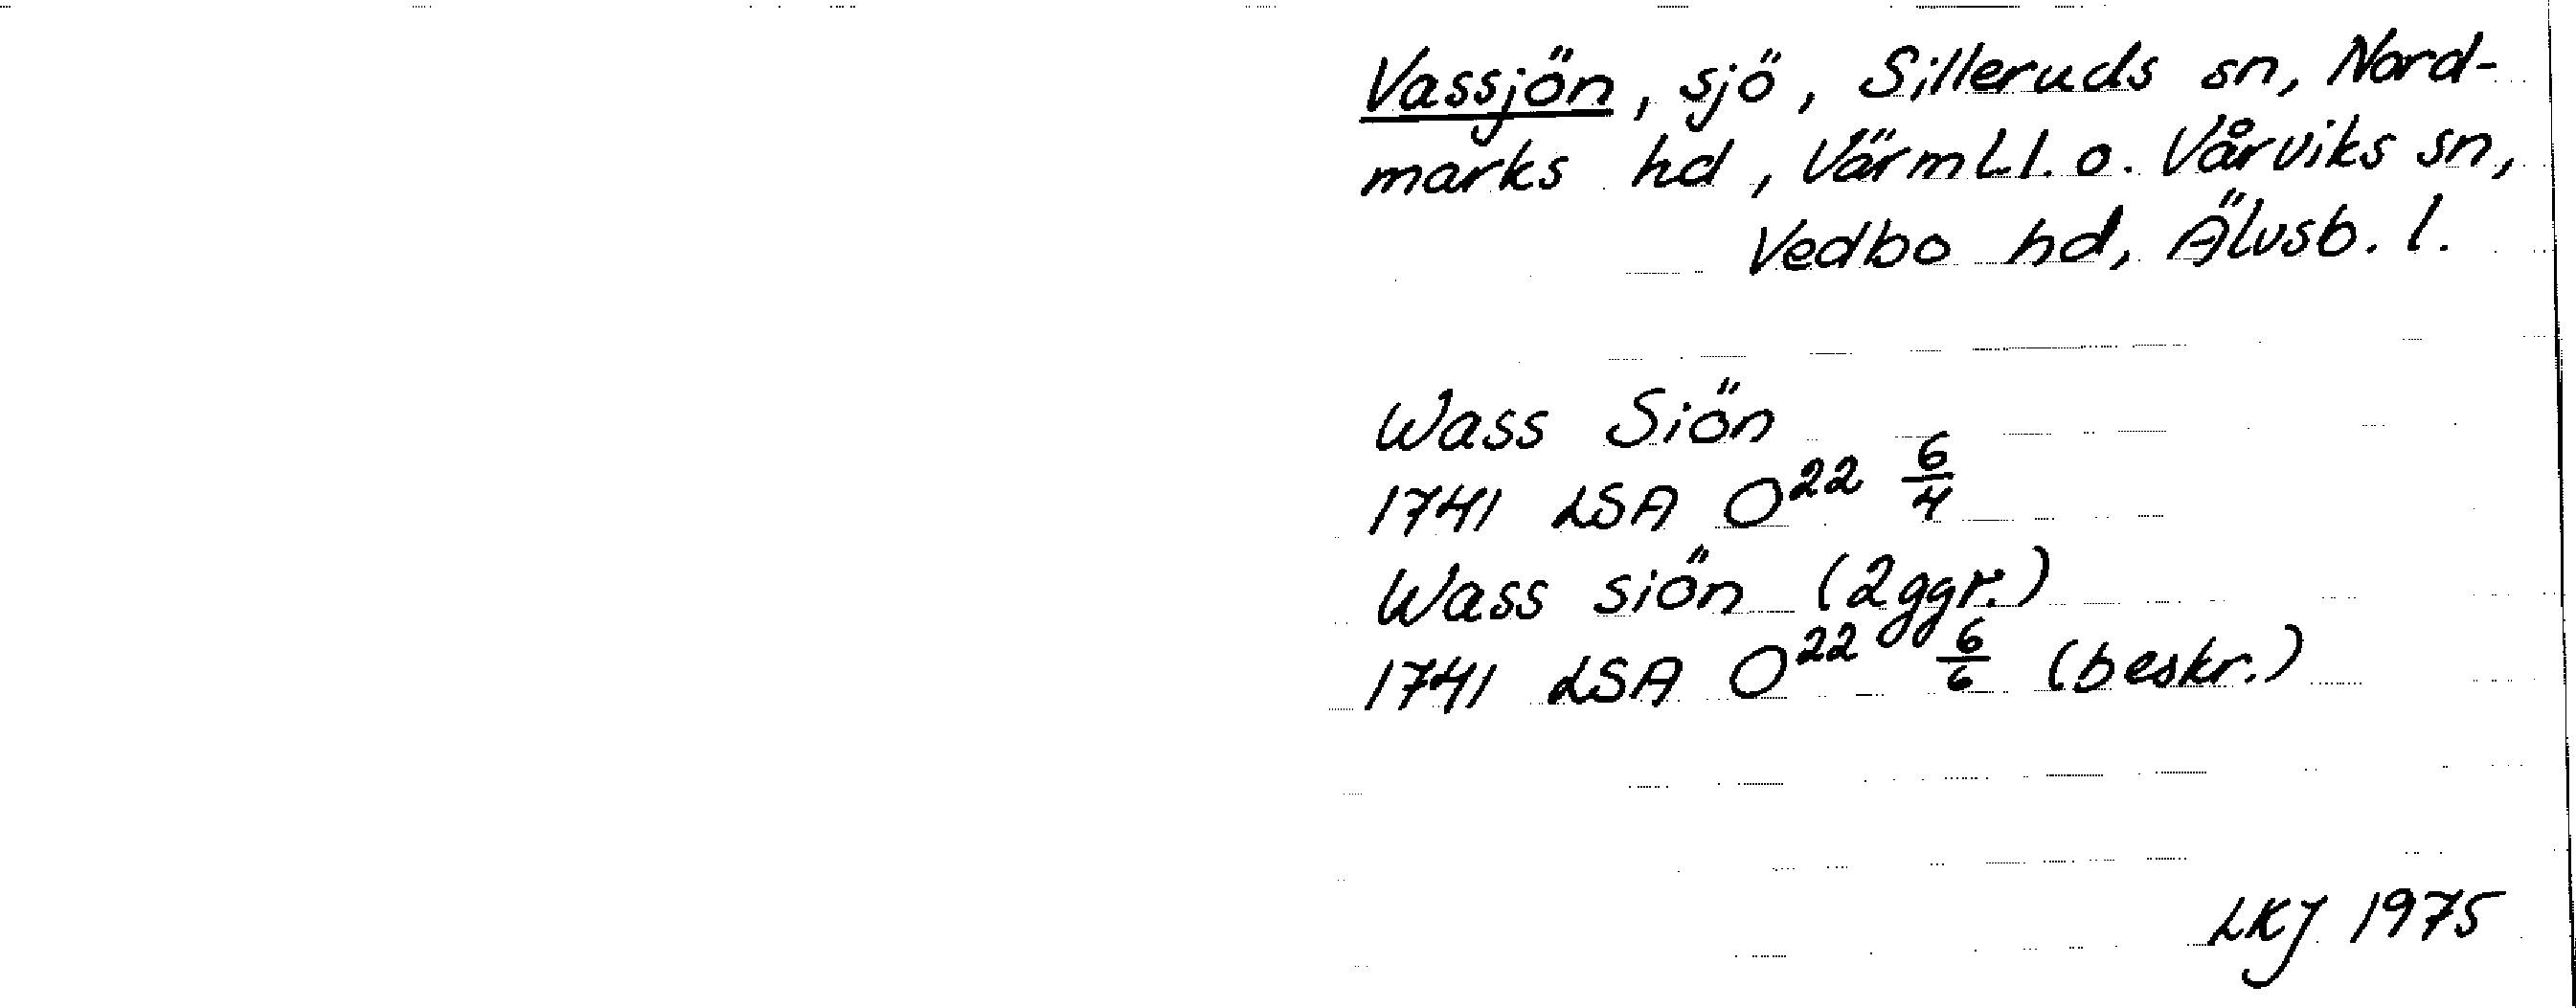 Vassjön, sjö, Silleruds sn, Nord-
marks hd, Värml.l. o. Vårviks sn,
Vedbo hd, Älvsb. l.
Wass Siön
1741 LSA O²² 6/4
Wass siön (2ggr.)
1741 LSA O²² 6/6 (beskr.)
LKJ 1975